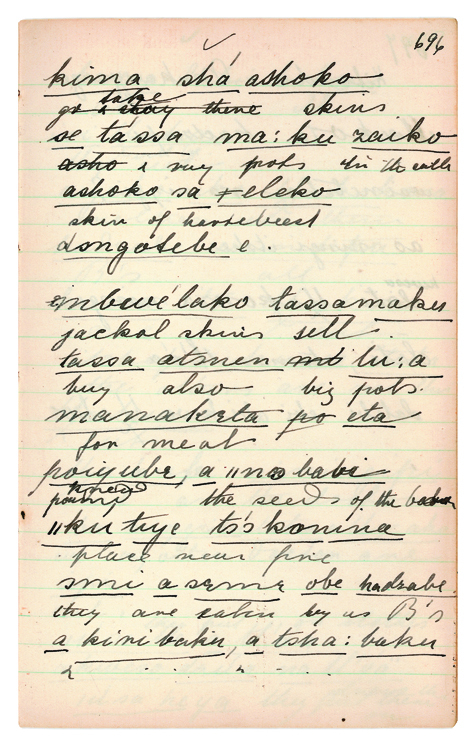 696
kima shá ashoko
take
go & stay there skins
se tassa ma: ku zaiko
asho & my pots in the
ashoko sa ≠eleko
skin of hartebeest
dongotebe e
mbewélako tassamaku
jackal skins sell
tassa atsnen mt lu:a
buy also big pots
manaketa po eta
for meat
poiyube, a "na babi
the seeds of the
"ku tuye tós konina
place near fire
smi a seme obe hadzabe
they are eaten by us B's
a kinibaku, a tsha: baku